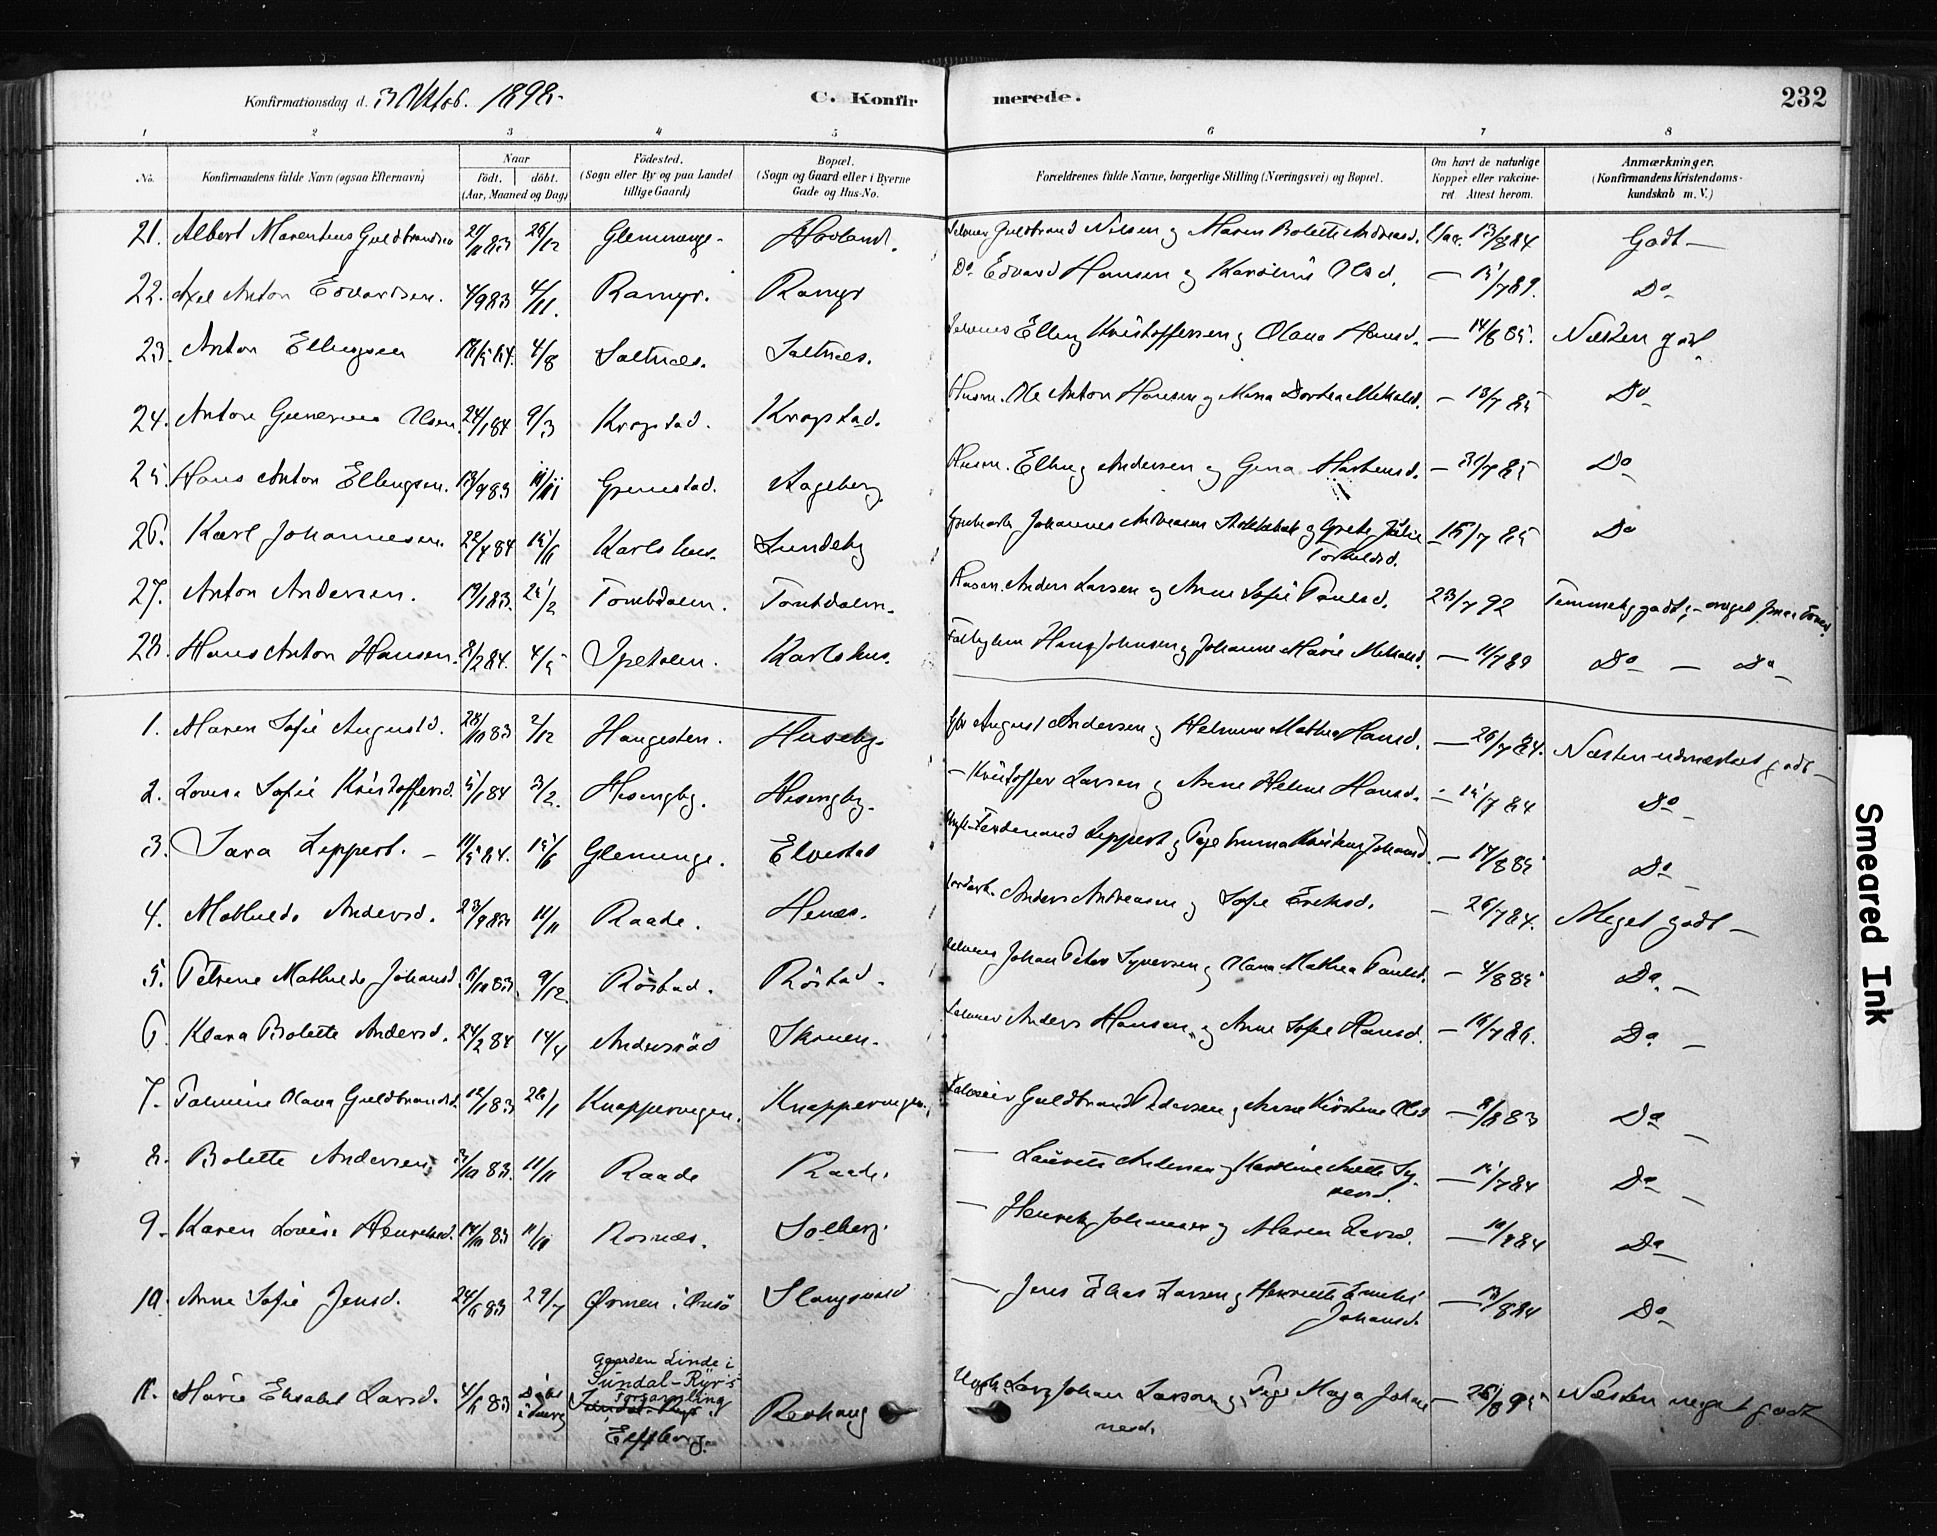 Konfirmationsdag d. 3 Oktob. 1898.
C. Konfirmerede.
232
1 2 3 4 5 6 7 8
No.
Konfirmandens fulde Navn (ogsaa Efternavn)
Naar
født. døbt.
(Aar, Maaned og Dag)
Fødested.
(Sogn eller By og paa Landet
tillige Gaard)
Bopæl.
(Sogn og Gaard eller i Byerne
Gade og Hus-No.
Forældrenes fulde Navne, borgerlige Stilling (Næringsvei) og Bopæl.
Om havt de naturlige
Kopper eller vakcine-
ret Attest herom.
Anmærkninger.
(Konfirmandens Kristendoms-
kundskab m. V.)
21. Albert Marentius Guldbrandsen 26/12 Glemminge Hovland. Guldbrand Nilsen og Maren Bolette Andreasd. 13/8 84 Godt
22. Axel Anton Edvardsen. 4/9 83 4/11. Ramyr. Ramyr Do Edvard Hansen og Olsd. /7 89. Do
23. Anton Ellingsen 4/8 Saltnæs. Saltnæs. Elling Kristoffersen og Olava Hansd. 14/8 85. Næsten godt
24. Anton Olsen 24/1 84 9/3 Krogstad. Krogstad. Husm. Ole Anton Hansen og Maria Dorthea 13/7 85 Do
25. Hans Anton Ellingsen. 13/9 83 11/11 Grimstad. Aageberg. Husm. Elling Andersen og Gina 31/7 85 Do
26. Karl Johannesen. 22/4 84 15/6 Karlshus. Lundeby Johannes Andreasen og Grete Julie 16/7 85 Do
27. Anton Andersen. 19/1 83. 25/2 Tombdalen. Tombdalen. Husm. Anders Larsen og Anne Sofie Paulsd. 23/7 92 Temmelig godt;
28. Hans Anton Hansen. 8/2 84. 4/5 Karlshus. Hans Johnsen og Johanne Marie 11/7 89 Do Do
1. Maren Sofie Augustd. 28/10 83 2/12 Haugesten. Huseby. August Andersen og Helmine Mathea Hansd. 26/7 84. Næsten udmærket godt
2. Lovise Sofie Kristoffersd. 5/1 84 3/2. Hesengby. Hesengby. Kristoffer Larsen og Anne Helene Hansd. 15/7 84 Do
3. Sara Leppert. 11/5 84. 15/6 Glemminge. Elvestad Ferdinand Leppert og Pige Emma Johansd. 14/8 85 Do
4. Mathilde Andersd. 23/9 83 11/11 Raade. Henæs. Anders Andreasen og Sofie Eriksd. 26/7 84. Meget godt
5. Petrine Mathilde Johansd. 6/10 83. 9/12. Röstad. Röstad. Johan Peter Syversen og Olava Mathea Paulsd. 4/8 85 Do
6. Klara Bolette Andersd. 24/2 84 14/4 Andersröd Skouen. Anders Hansen og Anne Sofie Hansd. 16/7 86. Do
7. Palmine Olava Guldbrandsd. 12/1 83 28/1 Knappervegen. Knappervegen. Guldbrand Pedersen og Anne Kirstine Olsd 8/8 83 Do
8. Bolette Andersen 3/10 83. 11/11 Raade Raade. Laurits Andersen og Karoline Anette Sy-
versd. 15/7 84 Do
9. Karen Lovise Henriksd. 14/10 83 11/11 Rosnæs. Solberg. Henrik Johansen og Maren 84 Do
10. Anne Sofie Jensd. 24/6 83 29/7 Ørmen i Onsö Slangsvold Jens Elias Larsen og Henriette Emilie
Johansd. 13/8 84 Do
11. Marie Elisabet Larsd. 4/6 83 Döbt i Sverg Gaarden Linde i
Sundal-Ryr's
Forsamling
Elfsborg. Revhaug Ungk. Lars Johan Larson og Pige Maja Johan
nesd. Næsten meget godt
Smeared Ink